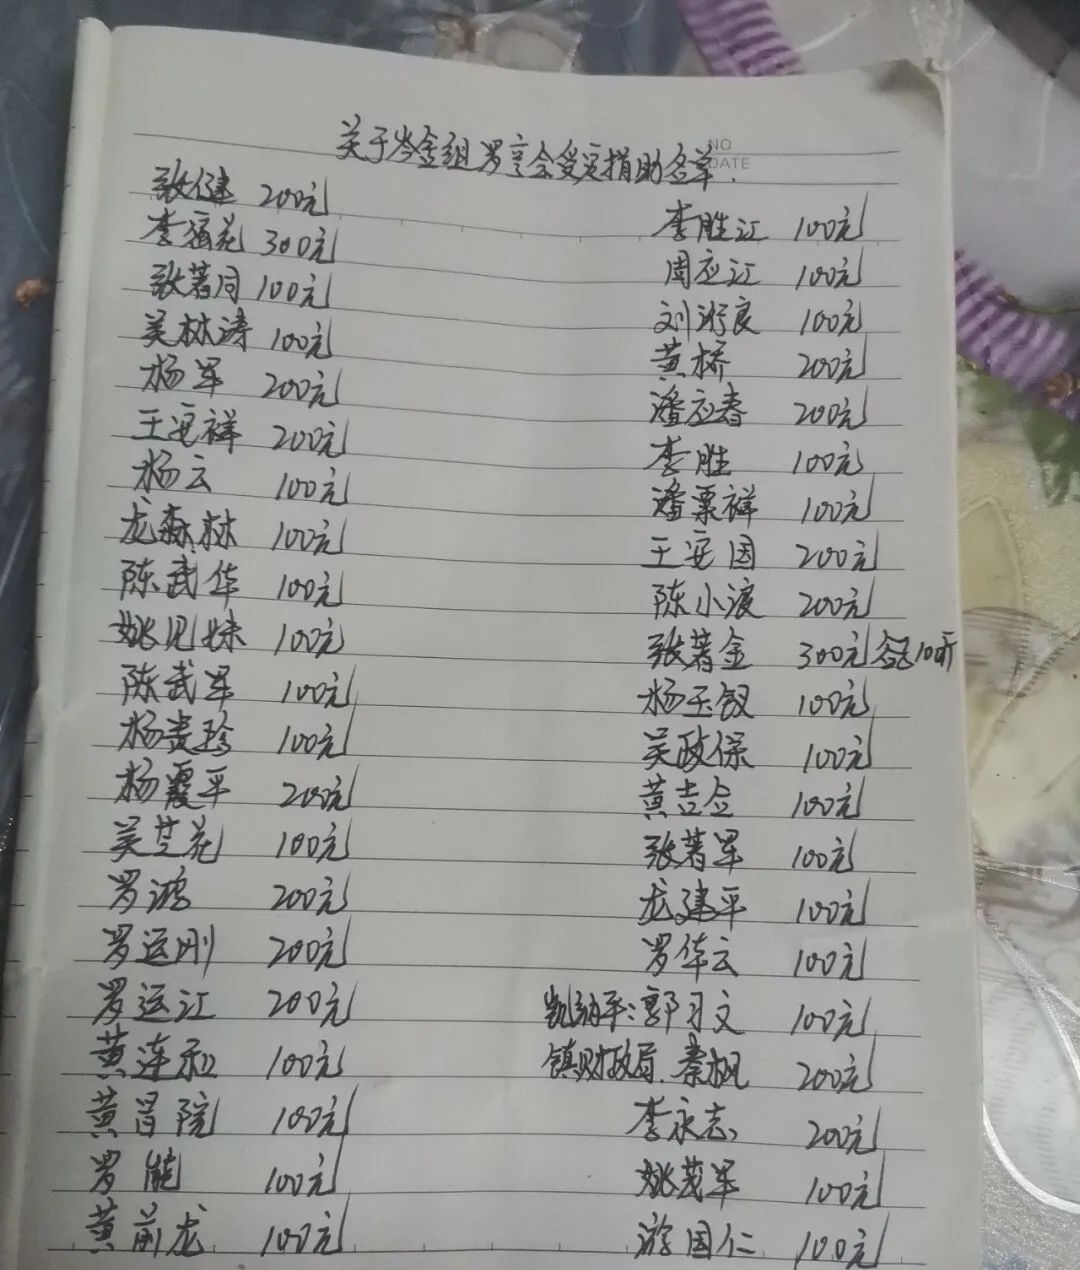 关于岑金组罗亨会受灾捐助名单.
NO
DATE
张健 200元
李宿花 300元
张著同 100元
吴林涛 100元
杨军 200元
王安祥 200元
杨云 100元
龙森林 100元
陈武华 100元
姚见妹 100元
陈武军 100元
杨贵珍 100元
杨霞平 200元
吴芝花 100元
罗鸿 200元
罗运刚 200元
罗运江 200元
黄连和 100元
黄昌院 100元
罗能 100元
黄前龙 100元
李胜江 100元
周应江 100元
刘济良 100元
黄桥 200元
潘应春 200元
李胜 100元
潘粟祥 100元
王安国 200元
陈小渡 200元
张著金 300元
杨玉钗 100元
吴政保 100元
黄吉金 100元
张著军 100元
龙建平 100元
罗华云 100元
郭习文 100元
镇财政局. 秦枫 200元
李永志 200元
姚茂军 100元
游国仁 100元